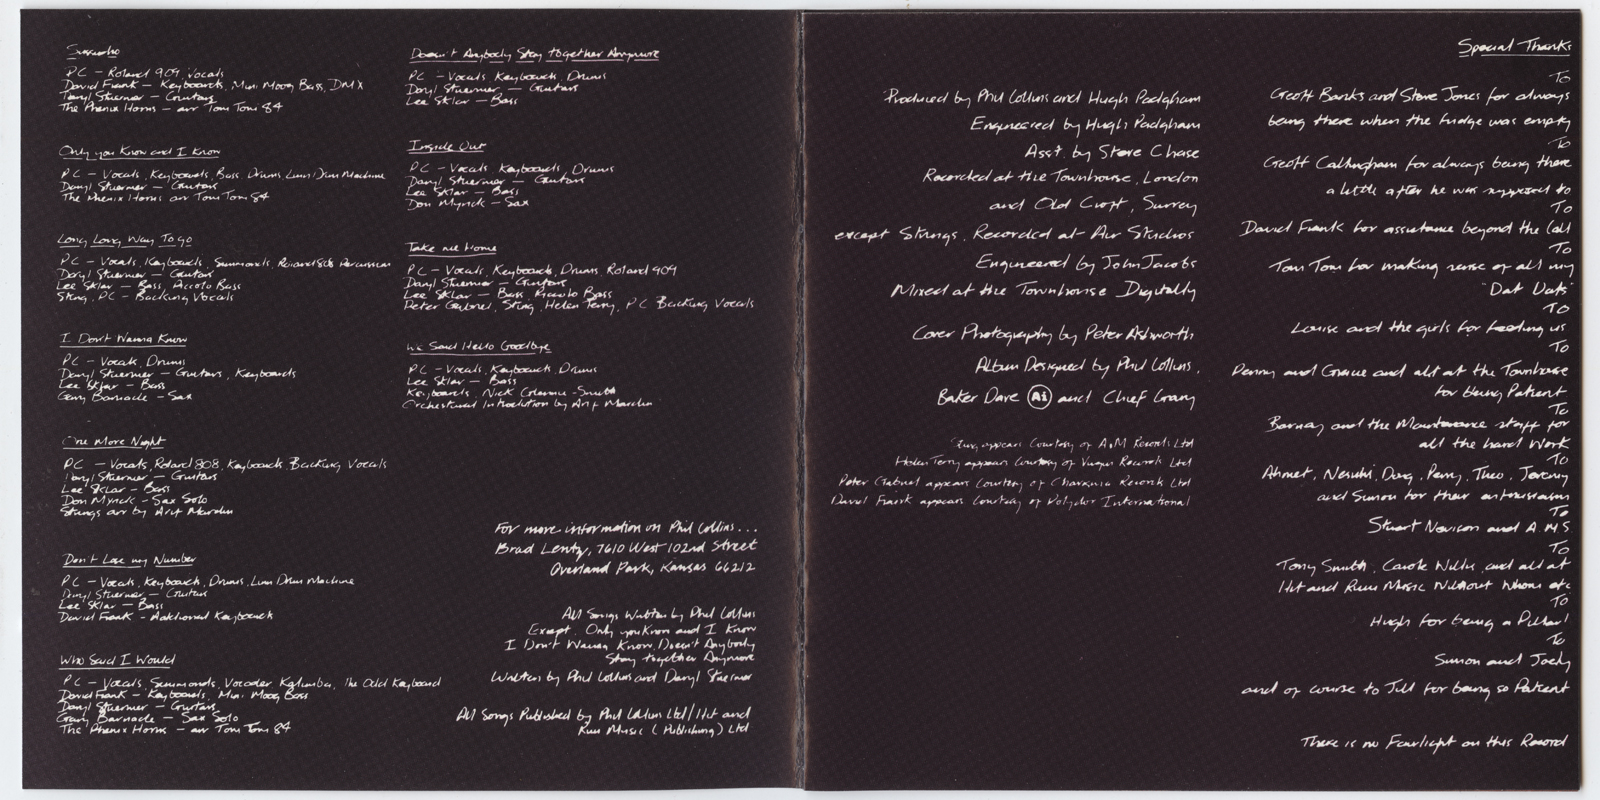 Sussudio
PC - Roland 909, Vocals
David Frank - Keyboards, Mini Moog Bass, DMX
Daryl Stuermer - Guitars
The Phenix Horns - arr Tom Tom 84
Only you Know and I Know
PC - Vocals, Keyboards, Bass, Drums, Linn Drum Machine
Daryl Stuermer - Guitars
The Phenix Horns arr Tom Tom 84
Long Long Way To go
PC - Vocals, Keyboards, Simmonds, Roland 808 Percussion
Daryl Stuermer - Guitars
Lee Sklar - Bass, Piccolo Bass
Sting, PC - Backing Vocals
I Don't Wanna Know
PC - Vocals, Drums
Daryl Stuermer - Guitars, Keyboards
Lee Sklar - Bass
Gary Barnacle - Sax
One More Night
PC - Vocals, Roland 808, Keyboards, Backing Vocals
Daryl Stuermer - Guitars
Lee Sklar - Bass
Don Myrick - Sax Solo
Strings arr by Arif Mardin
Don't Lose my Number
PC - Vocals, Keyboards, Drums, Linn Drum Machine
Daryl Stuermer - Guitars
Lee Sklar - Bass
David Frank - Additional Keyboards
Who Said I Would
PC - Vocals, Simmonds, Vocoder Kalimba, The Odd Keyboard
David Frank - Keyboards, Mini Moog Bass
Daryl Stuermer - Guitars
Gary Barnacle - Sax Solo
The Phenix Horns - arr Tom Tom 84
Doesn't Anybody Stay together Anymore
PC - Vocals, Keyboards, Drums
Daryl Stuermer - Guitars
Lee Sklar - Bass
Inside Out
PC - Vocals, Keyboards, Drums
Daryl Stuermer - Guitars
Lee Sklar - Bass
Don Myrick - Sax
Take me Home
PC - Vocals, Keyboards, Drums, Roland 909
Daryl Stuermer - Guitars
Lee Sklar - Bass, Piccolo Bass
Peter Gabriel, Sting, Helen Terry, PC Backing Vocals
We Said Hello Goodbye
PC - Vocals, Keyboards, Drums
Lee Sklar - Bass
Keyboards, Nick Glennie-Smith
Orchestral Introdution by Arif Mardin
For more information on Phil Collins...
Brad Lentz, 7610 West 102nd Street
Overland Park, Kansas 66212
All Songs Written by Phil Collins
Except, Only you Know and I Know
I Don't Wanna Know, Doesn't Anybody
Stay together Anymore
Written by Phil Collins and Daryl Stuermer
All Songs Published by Phil Collins Ltd/Hit and
Run Music (Publishing) Ltd
Produced by Phil Collins and Hugh Padgham
Engineered by Hugh Padgham
Asst. by Steve Chase
Recorded at the Townhouse, London
and Old Croft, Surrey
except Strings, Recorded at Air Studios
Engineered by John Jacobs
Mixed at the Townhouse Digitally
Cover Photography by Peter Ashworth
Album Designed by Phil Collins,
Baker Dave A1 and Chief Grany
Sting appears Courtesy of A&M Records Ltd
Helen Terry appears Courtesy of Virgin Records Ltd
Peter Gabriel appears Courtesy of Charisma Records Ltd
David Frank appears Courtesy of Polydor International
Special Thanks
To
Geoff Banks and Steve Jones for always
being there when the fridge was empty
To
Geoff Callingham for always being there
a little after he was supposed to
To
David Frank for assistance beyond the Call
To
Tom Tom for making sense of all my
"Dat Dats"
To
Louise and the girls for feeding us
To
Penny and Gracie and all at the Townhouse
for being Patient
To
Barney and the Maintenance staff for
all the hard Work
To
Ahmet, Nesuhi, Doug, Perry, Theo, Jeremy
and Simon for their enthusiasm
To
Stuart Nevison and AMS
To
Tony Smith, Carole Willis, and all at
Hit and Run Music Without Whom etc
To
Hugh for being a Pillar!
To
Simon and Joely
and of course to Jill for being so Patient
There is no Fairlight on this Record